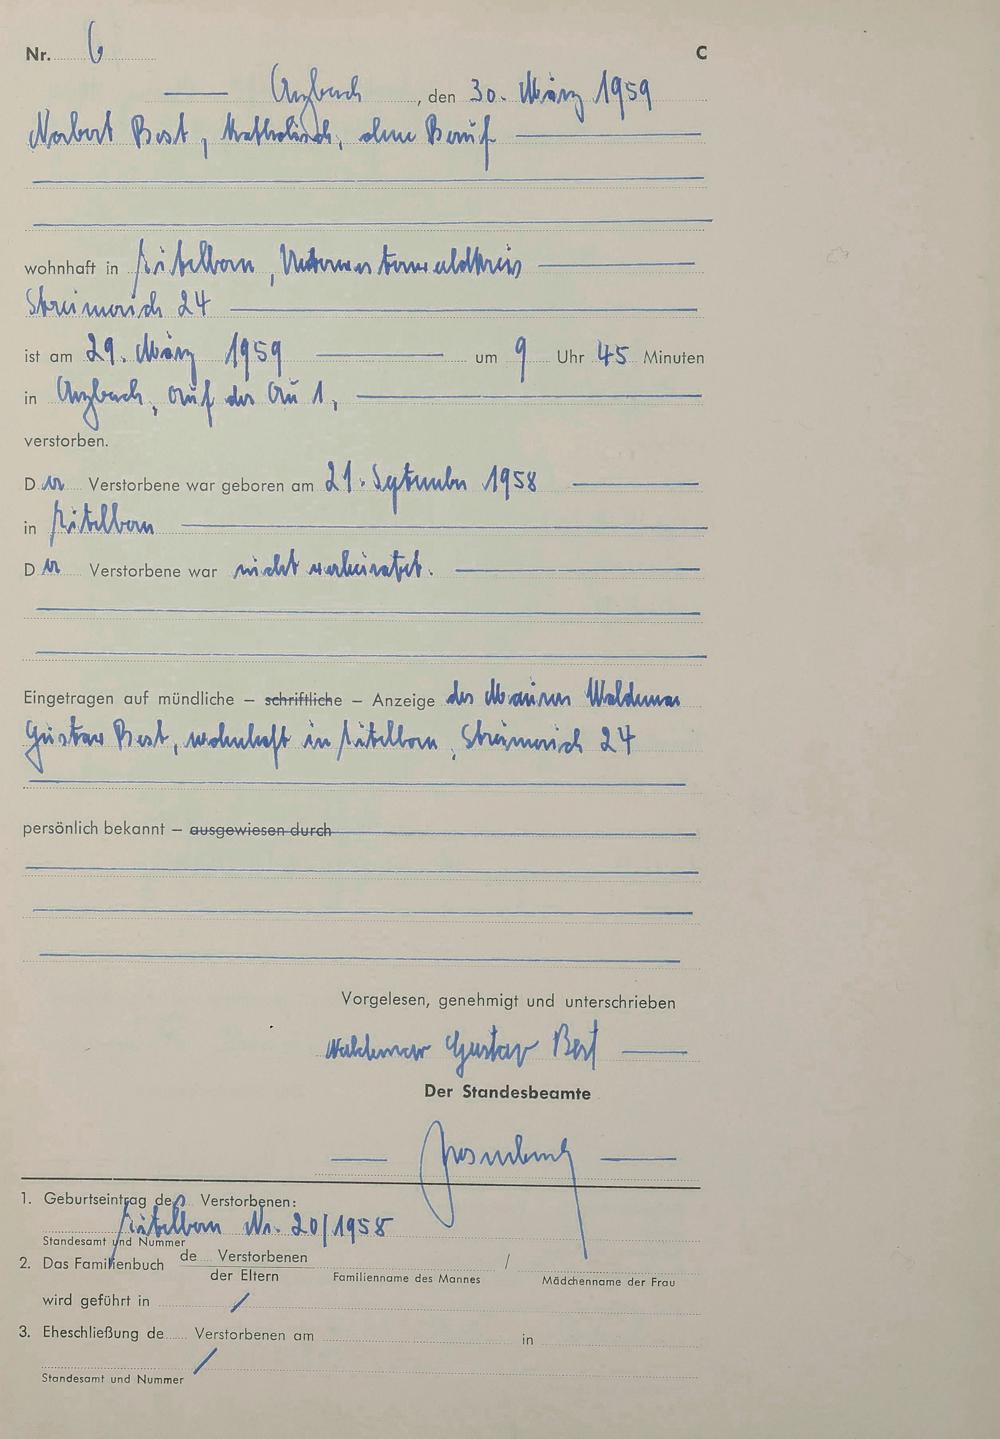 Nr. 6
C
Arzbach, den 30. März 1959
Norbert Best, Katholisch, ohne Beruf
wohnhaft in Kadenbach, Unterwesterwaldkreis
24
ist am 29. März 1959 um 9 Uhr 45 Minuten
in Arzbach, auf der Au 1,
verstorben.
Der Verstorbene war geboren am 21. September 1958
in
Der Verstorbene war nicht verheiratet.
Eingetragen auf mündliche – schriftliche – Anzeige des Maurers Waldemar
Gustav Best, wohnhaft in 24
persönlich bekannt – ausgewiesen durch
Vorgelesen, genehmigt und unterschrieben
Waldemar Gustav Best
Der Standesbeamte
1. Geburtseintrag des Verstorbenen:
Nr. 20/1958
Standesamt und Nummer
2. Das Familienbuch de Verstorbenen /
der Eltern Familienname des Mannes Mädchenname der Frau
wird geführt in /
3. Eheschließung de Verstorbenen am in
/
Standesamt und Nummer